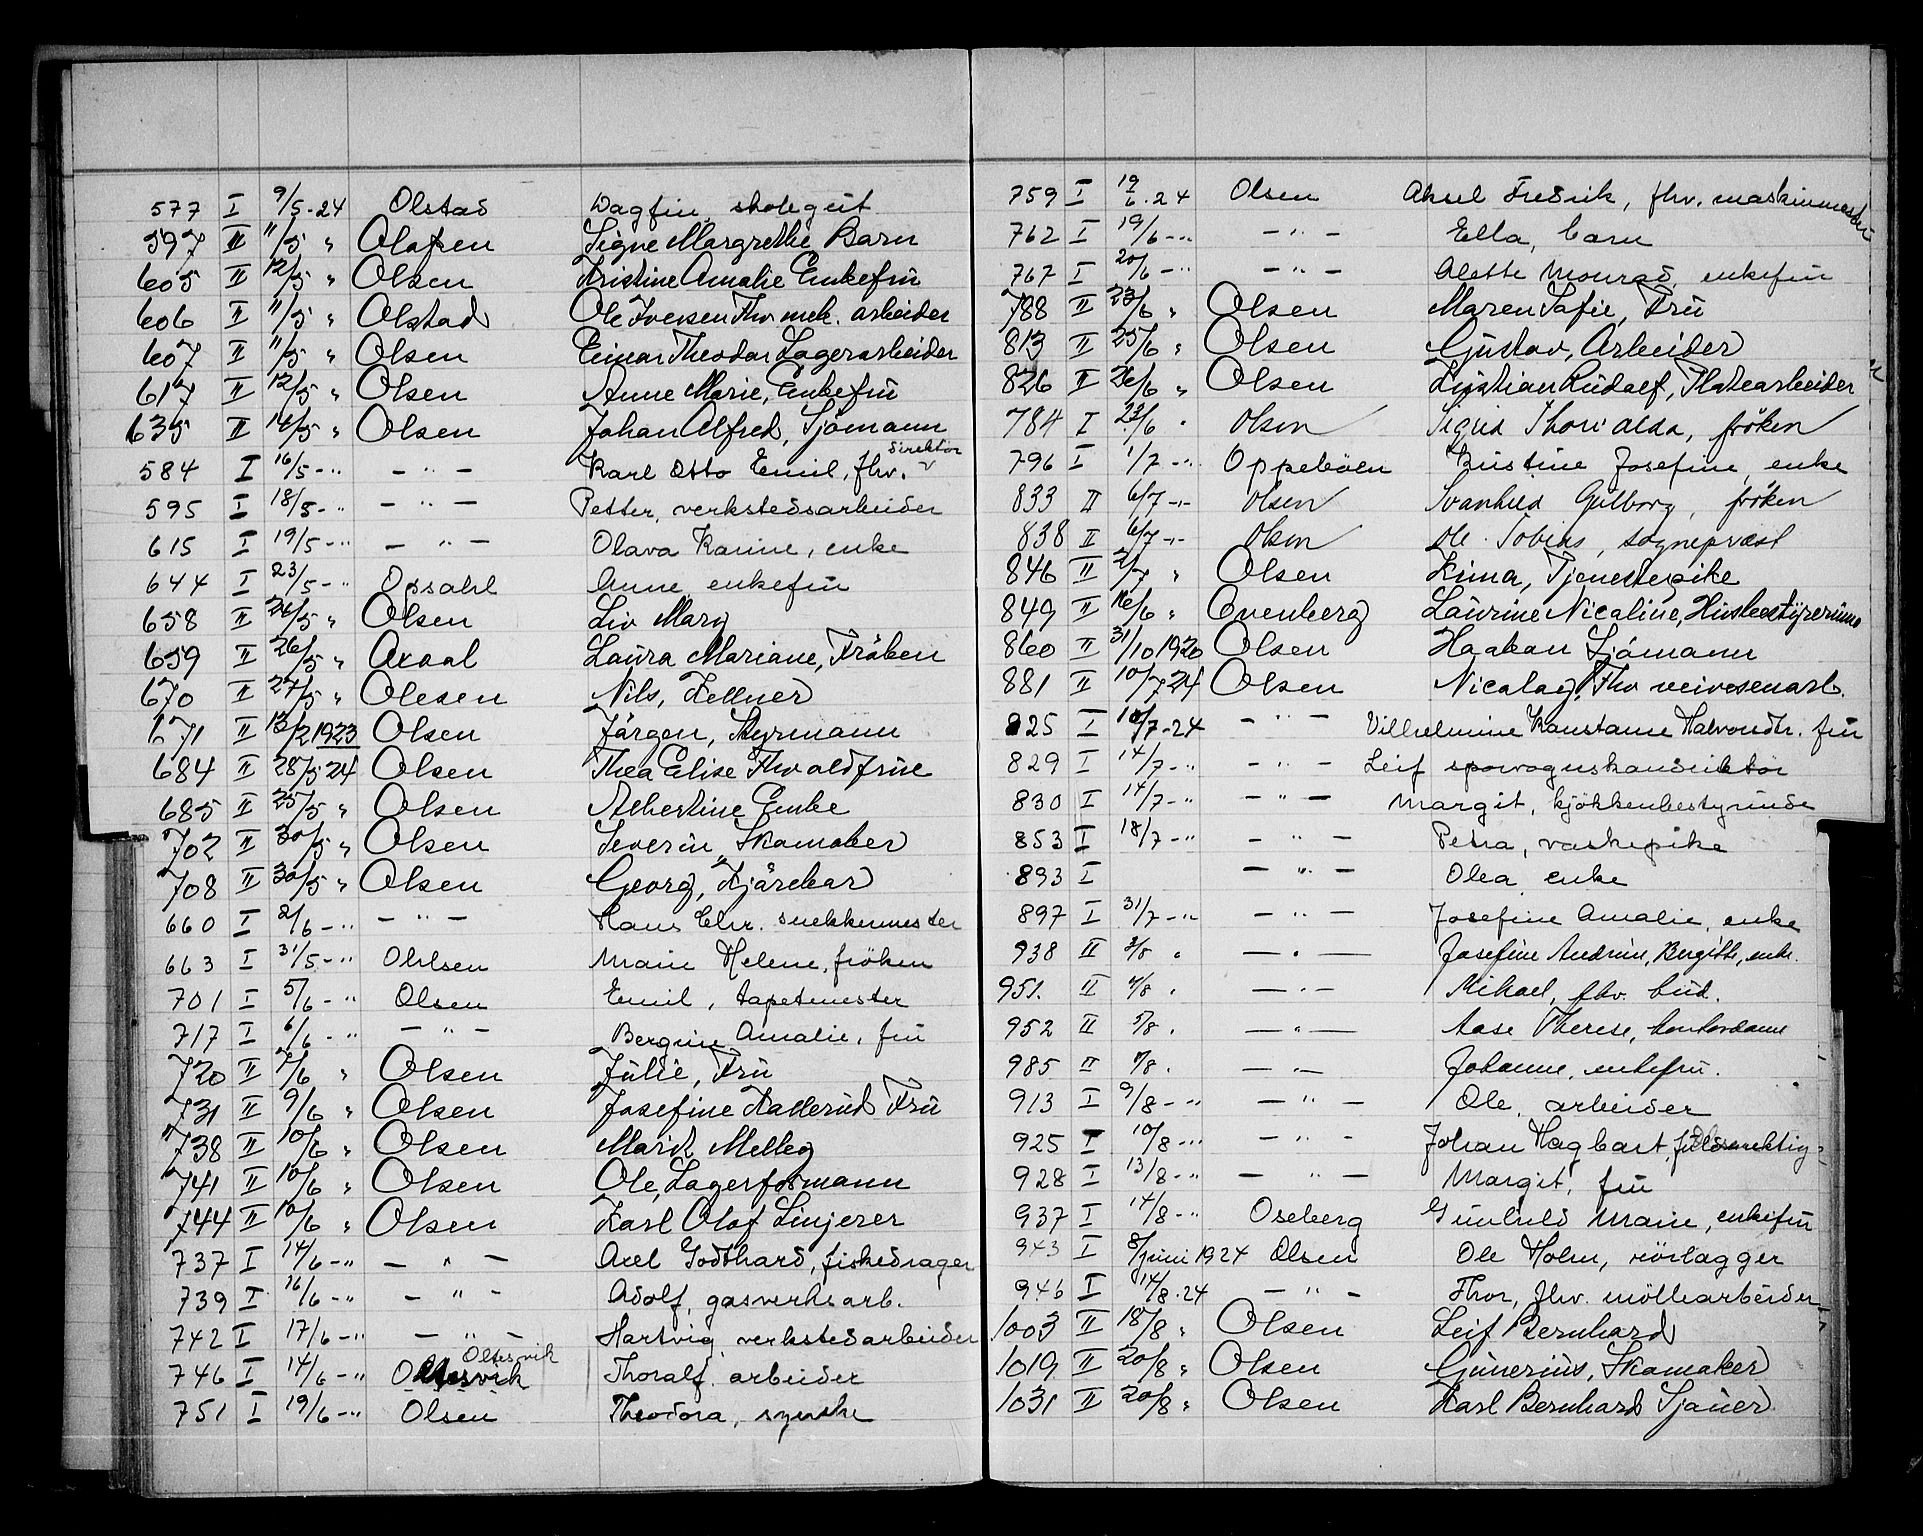 577 I 9/5-24 Olstad Dagfin, skolegut
597 II 11/5 " Olafsen Signe Margrethe Barn
605 II 12/5 " Olsen Kristine Amalie Enkefru
606 II 11/5 " Olstad Ole Iversen Fhv mek. arbeider
607 II 11/5 " Olsen Einar Theodor Lagerarbeider
617 II 12/5 " Olsen Anne Marie, Enkefru
635 II 14/5 " Olsen Johan Alfred, Sjömann
584 I 16/5 -"- — " — Karl Otto Emil, fhv. direktör
595 I 18/5 -"- — " — Petter, verkstedsarbeider
615 I 19/5 -"- — " — Olava Karine, enke
644 I 23/5 -"- Opsahl Anne, enkefru
658 II 24/5 " Olsen Liv Mary
659 II 26/5 " Oxaal Laura Mariane, Fröken
670 II 27/5 " Olesen Nils, Kellner
671 II 13/2 1923 Olsen Jörgen, Styrmann
684 II 28/5 24 Olsen Thea Elise Fhv oldfrue
685 II 25/5 " Olsen Albertine Enke
702 II 30/5 " Olsen Severin, Skomaker
708 II 30/5 " Olsen Georg, Kjörekar
660 I 2/6 -"- — " — Hans Chr. snekkermester
663 I 31/5 -"- Ohlsen Marie Helene, fröken
701 I 5/6 -"- Olsen Emil, tapetmester
717 I 6/6 -"- — " — Bergine Amalie, fru
720 II 7/6 " Olsen Julie, Fru
731 II 9/6 " Olsen Josefine Kallerud Fru
738 II 10/6 " Olsen Marit Melleg
741 II 10/6 " Olsen Ole, Lagerformann
744 II 10/6 " Olsen Karl Olaf Linjerer
737 I 14/6 -"- — " — Axel Godthard, fiskedrager
739 I 16/6 -"- — " — Adolf, gasverksarb.
742 I 17/6 -"- — " — Hartvig, verkstedarbeider
746 I 14/6 -"- Oltesvik Thoralf, arbeider
751 I 19/6 -"- Olsen Theodora, syerske
759 I 19/6.24 Olsen Aksel Fredrik, fhv. maskinmester
762 I 19/6 -"- — " — Ella, barn
767 I 20/6 -"- — " — Alette Monrad, enkefru
788 II 23/6 " Olsen Maren Sofie, Fru
813 II 25/6 " Olsen Gustav, Arbeider
826 II 26/6 " Olsen Kristian Rudolf, Platearbeider
784 I 23/6 " Olsen Sigrid Thorvalda, fröken
796 I 1/7 -"- Oppeböen Kristine Josefine, enke
833 II 6/7 -"- Olsen Svanhild Gulborg, fröken
838 II 6/7 -"- Olsen Ole Tobias, sogneprest
846 II 2/7 " Olsen Kima, Tjenestepike
849 II 16/6 " Ovenberg Laurine Nicoline, Husbestyrerinne
860 II 31/10 1920 Olsen Haakon Sjömann
881 II 10/7 24 Olsen Nicolay, Fhv veivesenarb.
825 I 10/7-24 — " — Vilhelmine Konstanse Halvorsdtr. fru
829 I 14/7 -"- — " — Leif sporvognskonduktör
830 I 14/7 -"- — " — Margit, kjökkenbestyrinde
853 I 18/7 -"- — " — Petra, vaskepike
893 I — " — Olea, enke
897 I 31/7 -"- — " — Josefine Amalie, enke
938 II 2/8 " — " — Josefine Andrine, Bergitte, enke.
951. II 4/8 " — " — Mikael, fhv. bud.
952 II 5/8 " — " — Aase Therese, kontordame
985 II 7/8 " — " — Johanne, enkefru.
913 I 9/8 -"- — " — Ole, arbeider
925 I 10/8 -"- — " — Johan Hagbart, fuldmektig
928 I 13/8 -"- — " — Margit, fru
937 I 14/8 -"- Oseberg Gunhild Marie, enkefru
943 I 8/juni 1924 Olsen Ole Holm, rörlægger
946 I 14/8.24 — " — Thor, fhv. möllearbeider
1003 II 18/8 " Olsen Leif Bernhard
1019 II 20/8 " Olsen Gunerius, Skomaker
1031 II 20/8 " Olsen Karl Bernhard Sjauer